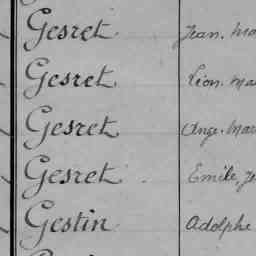 Gesret Jean. Ma
Gesret Léon. Ma
Gesret Ange. Mar
Gesret Emile, Je
Gestin Adolphe